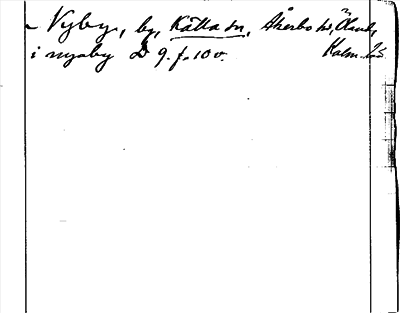 Nyby, by, Källa sn, Åkerbo hd, Öland,
i nyaby D 9. f. 10 v. Kalm. län